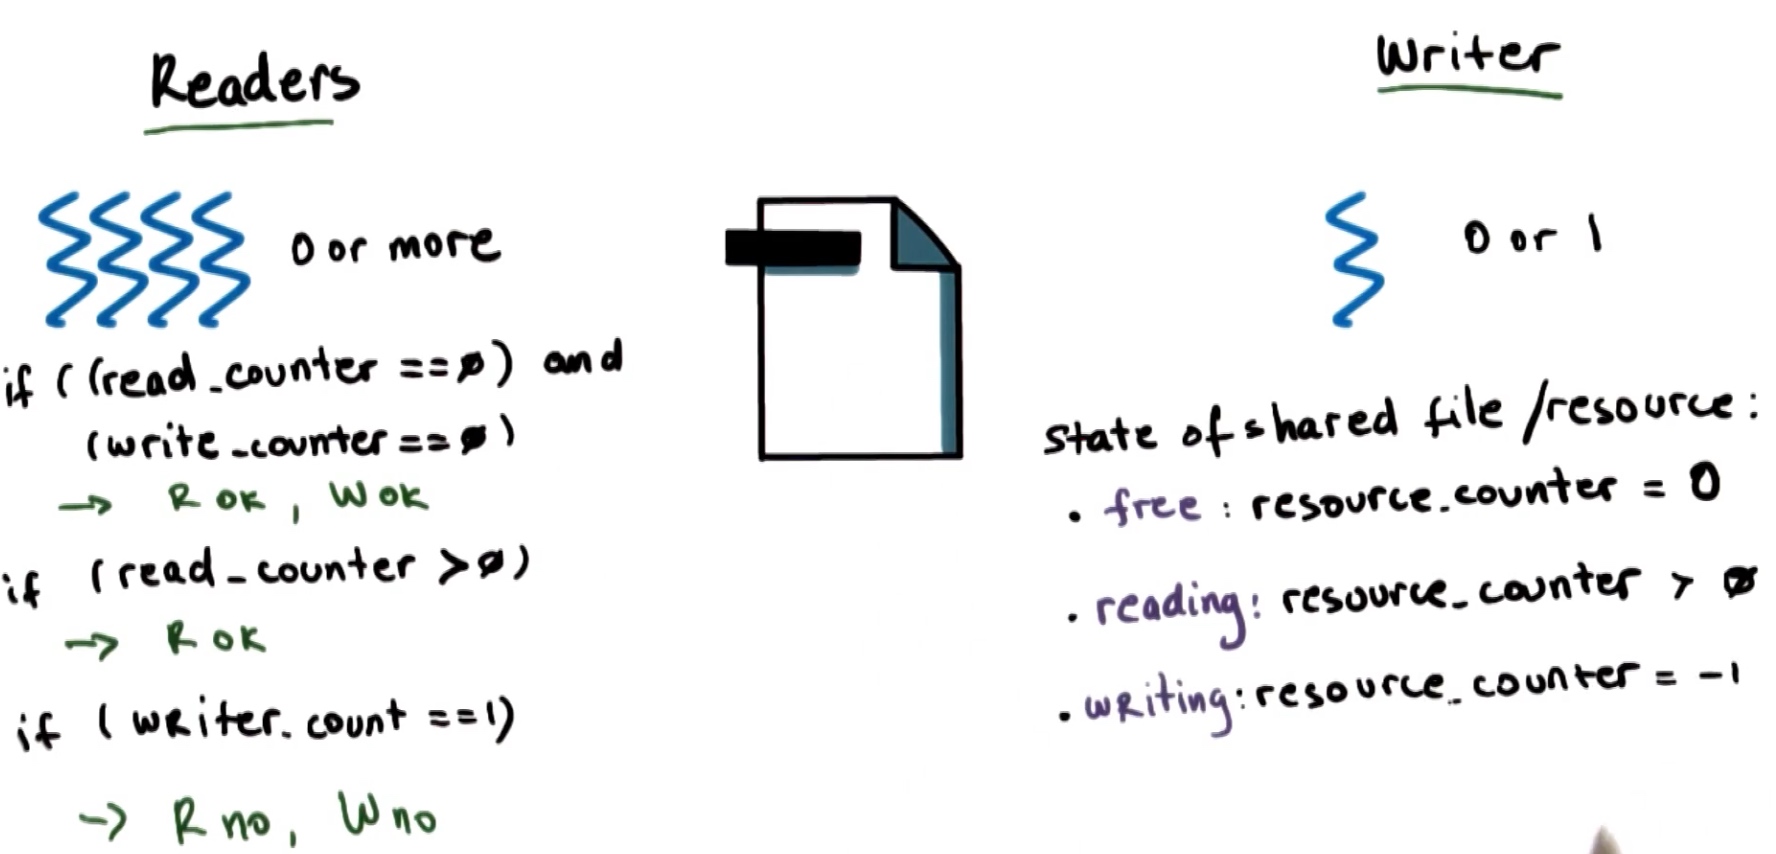 Readers
0 or more
if ((read_counter == 0) and
(write_counter == 0)
→ R ok, W ok
if (read_counter > 0)
→ R ok
if (writer_count == 1)
→ R no, W no
Writer
0 or 1
state of shared file/resource:
• free: resource_counter = 0
• reading: resource_counter > 0
• writing: resource_counter = -1